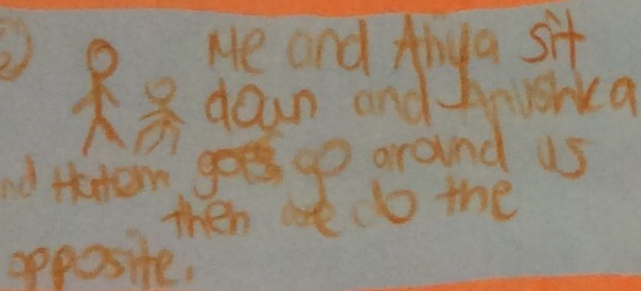 2
Me and Aliya sit
down and Anushka
nd Hatem go around us
then we do the
opposite.